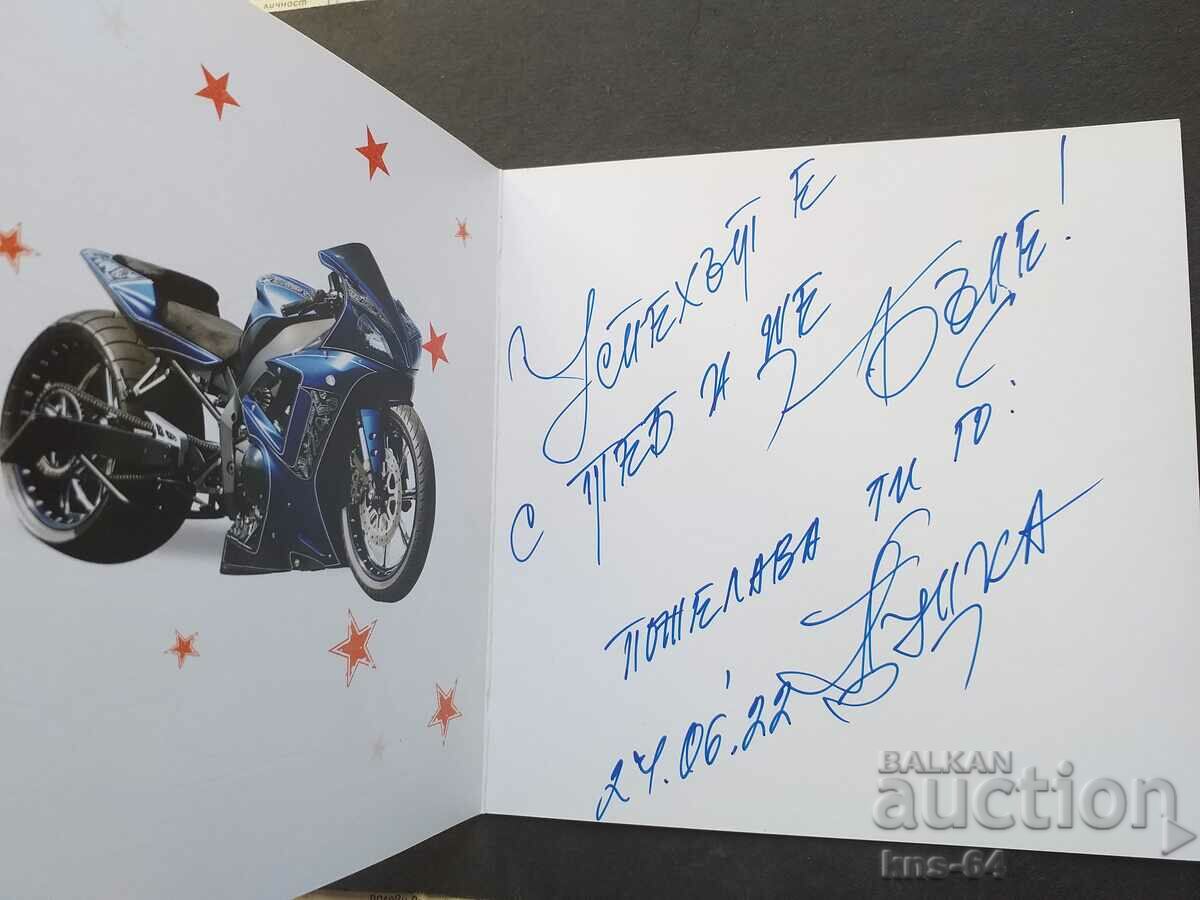 личност
Успехът е
с теб и ще
бъде!
Пожелава ти го:
24.06.22
BALKAN
auction
kns-64